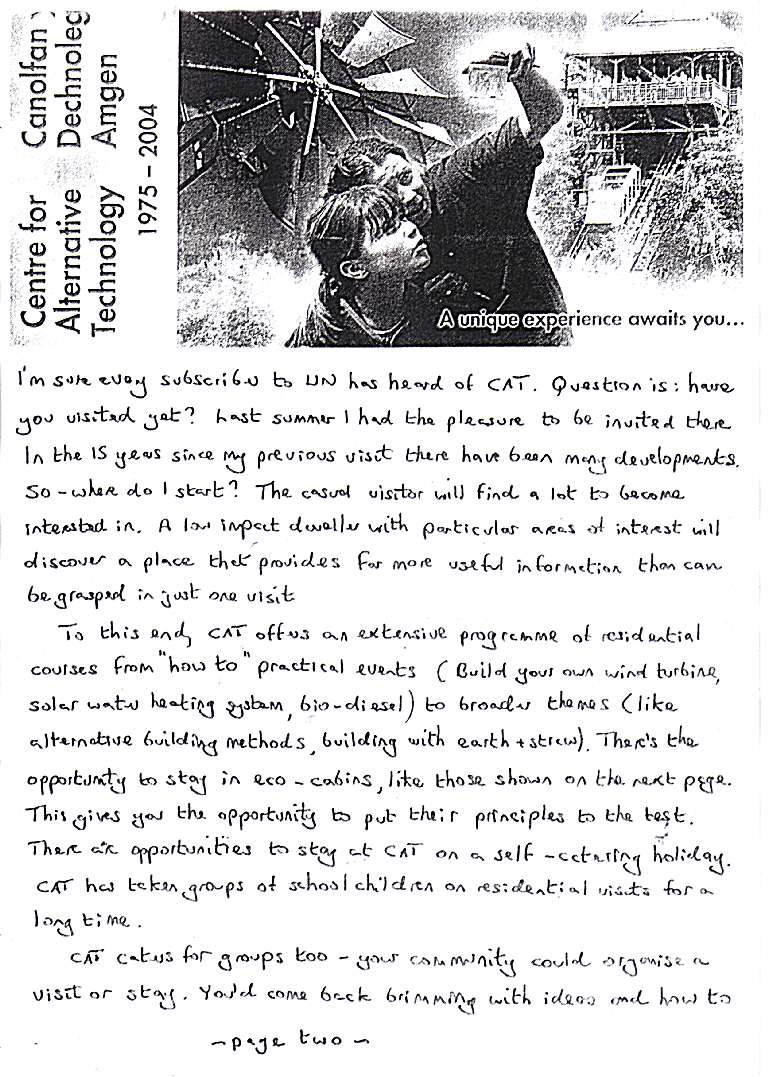 Centre for Canolfan y
Alternative Dechnoleg
Technology Amgen
1975 – 2004
A unique experience awaits you...
I'm sure every subscriber to UN has heard of CAT. Question is: have
you visited yet? Last summer I had the pleasure to be invited there
In the 15 years since my previous visit there have been many developments.
So - where do I start? The casual visitor will find a lot to become
interested in. A low impact dweller with particular areas of interest will
discover a place that provides far more useful information than can
be grasped in just one visit
To this end, CAT offers an extensive programme of residential
courses from "how to" practical events (Build your own wind turbine,
solar water heating system, bio-diesel) to broader themes (like
alternative building methods, building with earth + straw). There's the
opportunity to stay in eco-cabins, like those shown on the next page.
This gives you the opportunity to put their principles to the test.
There are opportunities to stay at CAT on a self-catering holiday.
CAT has taken groups of school children on residential visits for a
long time.
CAT caters for groups too - your community could organise a
visit or stay. You'd come back brimming with ideas and how to
~ page two ~